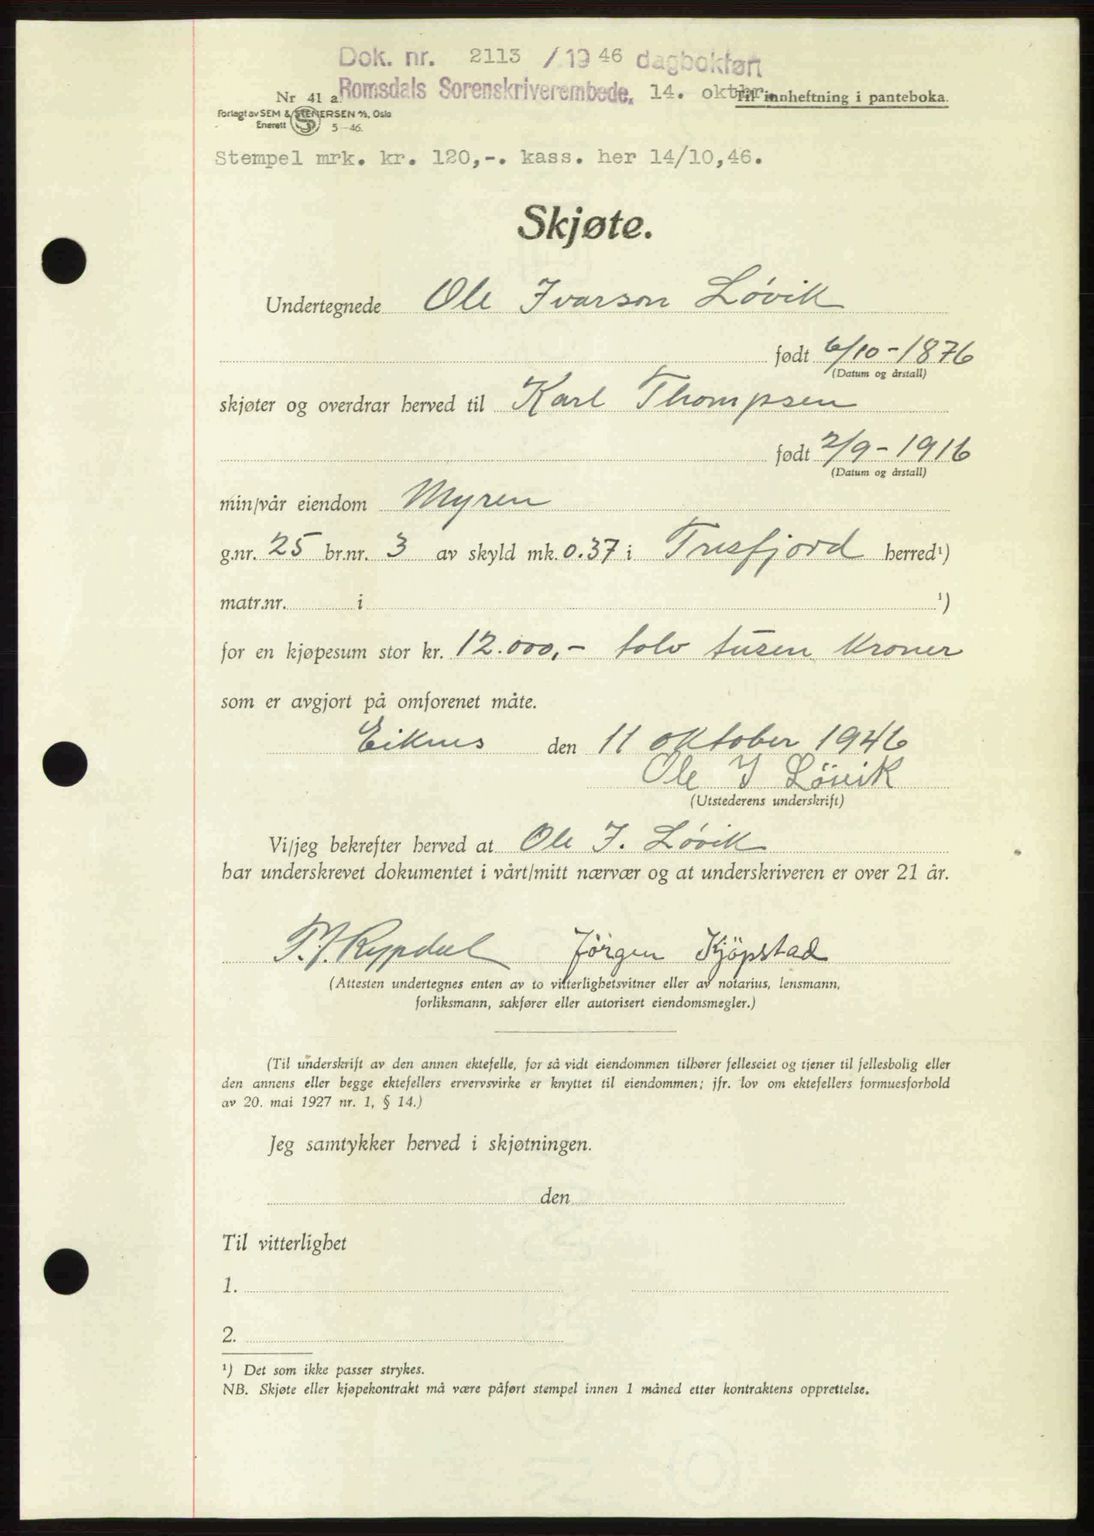 Dok. nr. 2113 / 1946 dagbokført
Romsdals Sorenskriverembede, 14. oktbr.
Nr 41 a Til innheftning i panteboka.
Forlagt av SEM & STENERSEN A/S, Oslo
Enerett S 5-46.
Stempel mrk. kr. 120,-. kass. her 14/10,46.
Skjøte.
Undertegnede Ole Ivarson Løvik
født 6/10-1876
(Datum og årstall)
skjøter og overdrar herved til Karl Thompsen
født 2/9-1916
(Datum og årstall)
min/vår eiendom Myren
g.nr. 25 br.nr. 3 av skyld mk. 0.37 i Tresfjord herred¹)
matr.nr. i ¹)
for en kjøpesum stor kr. 12.000,- tolv tusen kroner
som er avgjort på omforenet måte.
Eiknes den 11 oktober 1946
Ole I Løvik
(Utstederens underskrift)
Vi/jeg bekrefter herved at Ole I. Løvik
har underskrevet dokumentet i vårt/mitt nærvær og at underskriveren er over 21 år.
T. J. Rypdal Jörgen Kjöpstad
(Attesten undertegnes enten av to vitterlighetsvitner eller av notarius, lensmann,
forliksmann, sakfører eller autorisert eiendomsmegler.)
(Til underskrift av den annen ektefelle, for så vidt eiendommen tilhører felleseiet og tjener til fellesbolig eller
den annens eller begge ektefellers ervervsvirke er knyttet til eiendommen; jfr. lov om ektefellers formuesforhold
av 20. mai 1927 nr. 1, § 14.)
Jeg samtykker herved i skjøtningen.
den
Til vitterlighet
1.
2.
¹) Det som ikke passer strykes.
NB. Skjøte eller kjøpekontrakt må være påført stempel innen 1 måned etter kontraktens opprettelse.